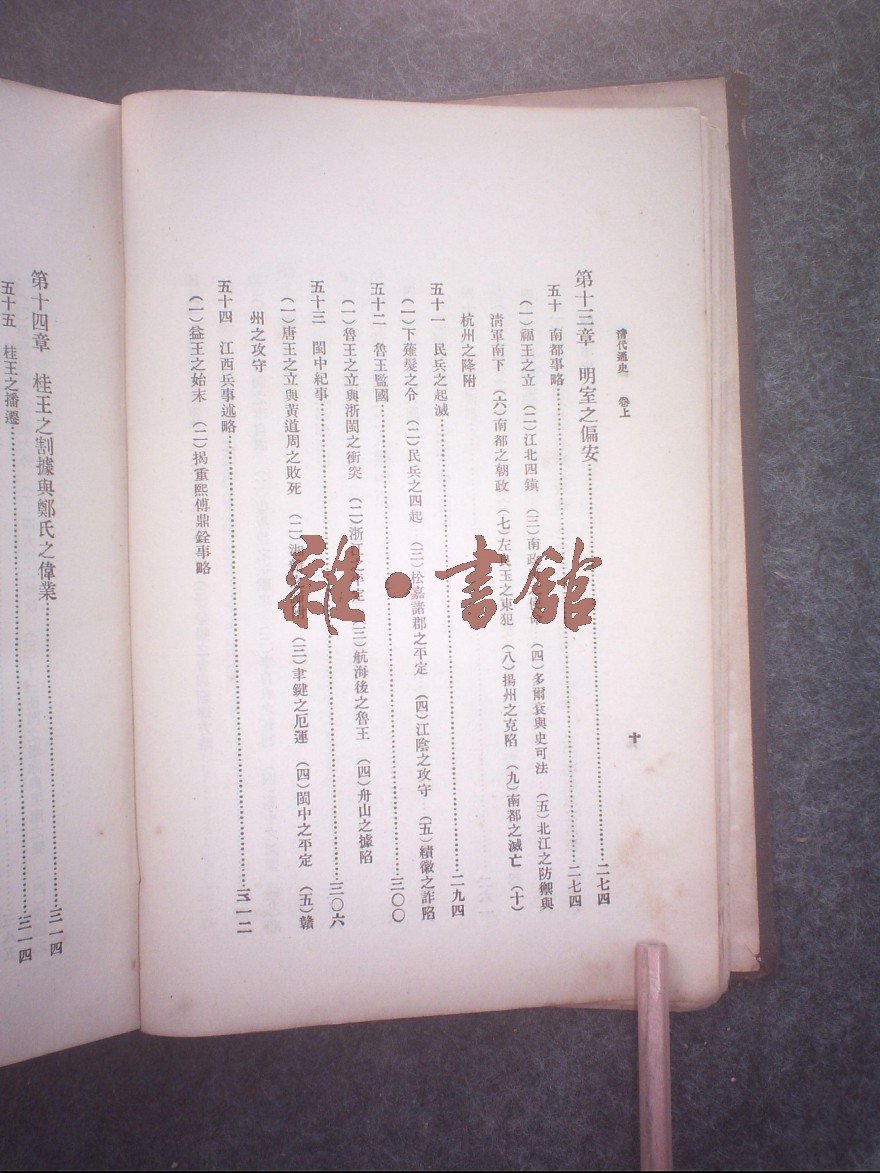 清代通史 卷上
十
第十三章 明室之偏安……二七四
五十 南都事略……二七四
(一)福王之立 (二)江北四鎮 (三)南政 (四)多爾袞與史可法 (五)北江之防禦與
清軍南下 (六)南都之朝政 (七)左良玉之東犯 (八)揚州之克陷 (九)南都之滅亡 (十)
杭州之降附
五十一 民兵之起滅……二九四
(一)下薙髮之令 (二)民兵之四起 (三)松嘉諸郡之平定 (四)江陰之攻守 (五)績徽之詐陷
五十二 魯王監國……三〇〇
(一)魯王之立與浙閩之衝突 (二)浙江之平定 (三)航海後之魯王 (四)舟山之據陷
五十三 閩中紀事……三〇六
(一)唐王之立與黃道周之敗死 (二)湘 (三)聿鍵之厄運 (四)閩中之平定 (五)贛
州之攻守
五十四 江西兵事述略……三一二
(一)益王之始末 (二)揭重熙傅鼎銓事略
第十四章 桂王之割據與鄭氏之偉業……三一四
五十五 桂王之播遷……三一四
雜·書館